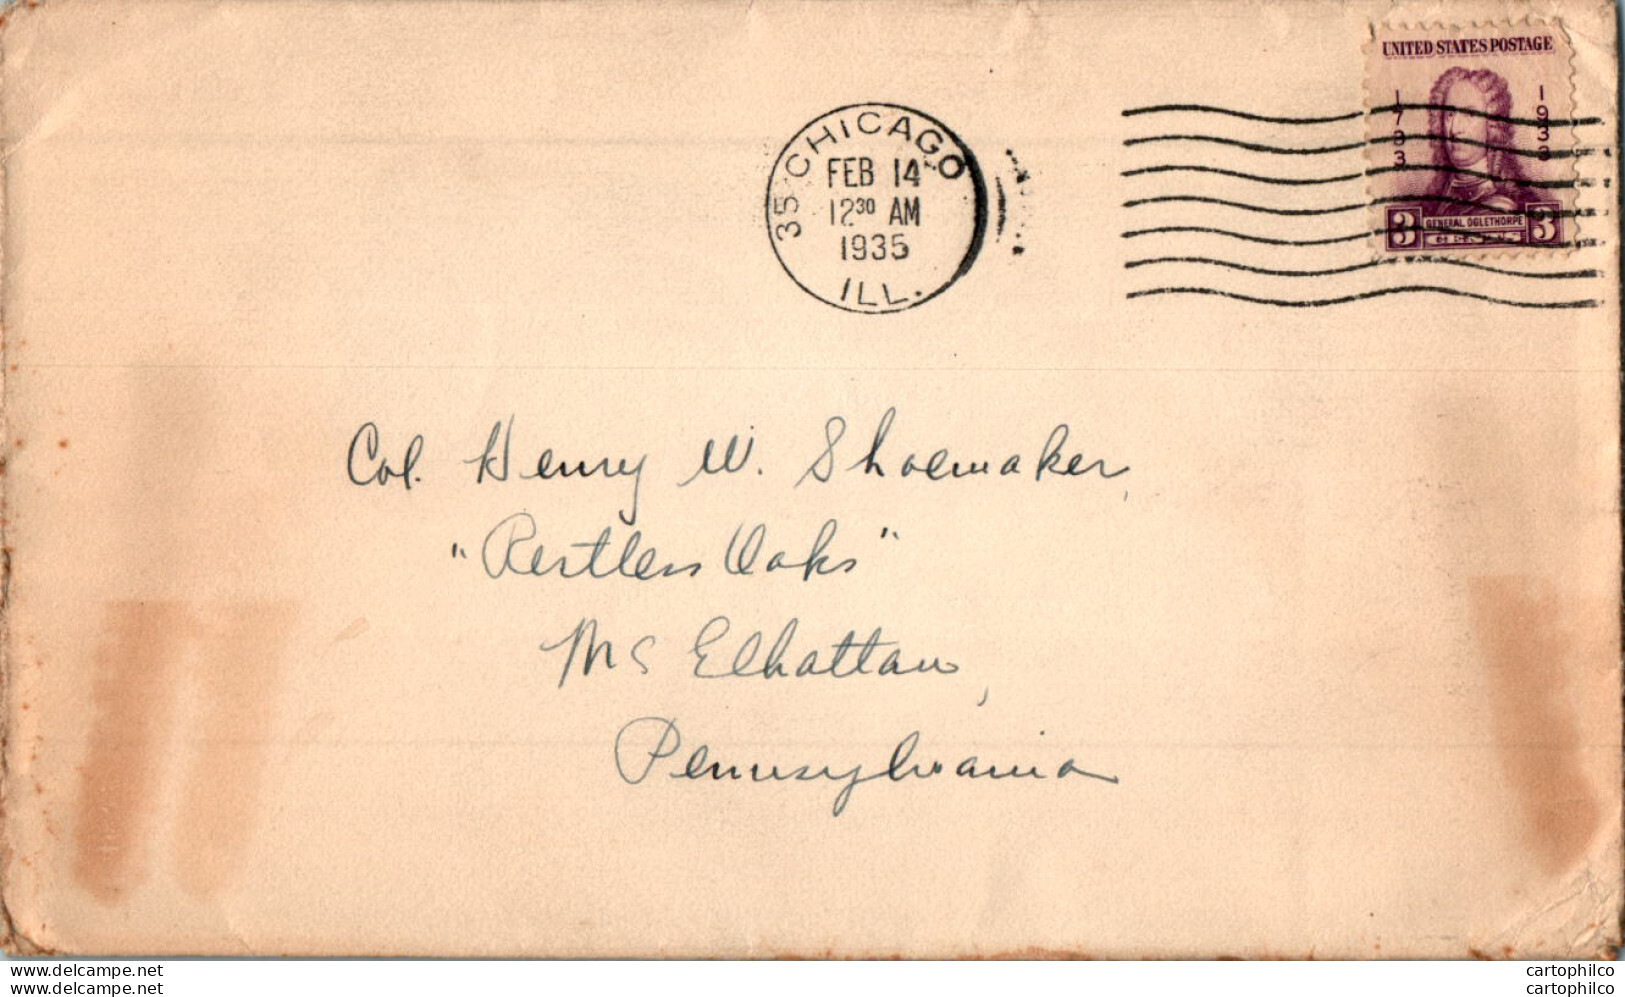 UNITED STATES POSTAGE
1733 1933
3 GENERAL OGLETHORPE 3
CENTS
35 CHICAGO
FEB 14
12 30 AM
1935
ILL.
Col. Henry W. Shoemaker,
"Restless Oaks"
Mc Elhattan,
Pennsylvania
www.delcampe.net
www.delcampe.net
cartophilco
cartophilco